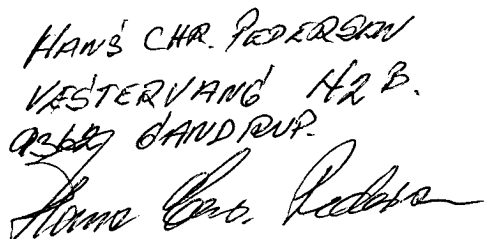 HANS CHR. PEDERSEN
VESTERVANG 42 B.
9362 GANDRUP.
Hans Chr. Pedersen